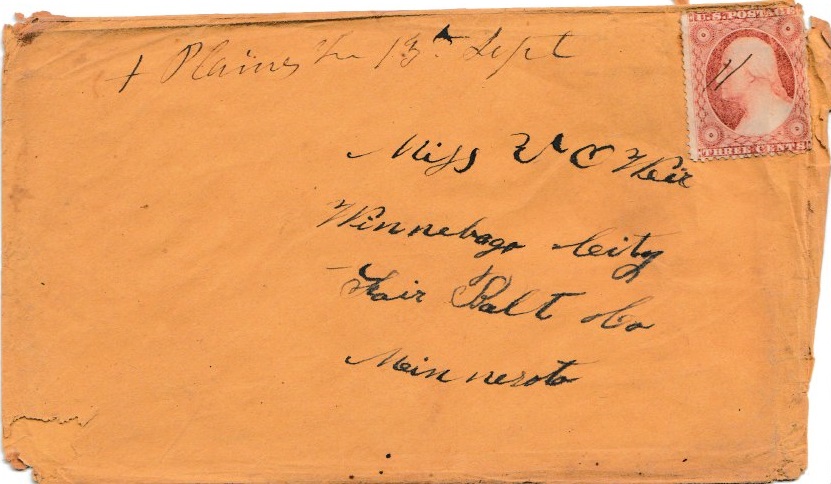 U.S. POSTAGE
Plains 13th Sept
Miss V C Weir
Winnebago City
Fair Balt Co
Minnesota
THREE CENTS